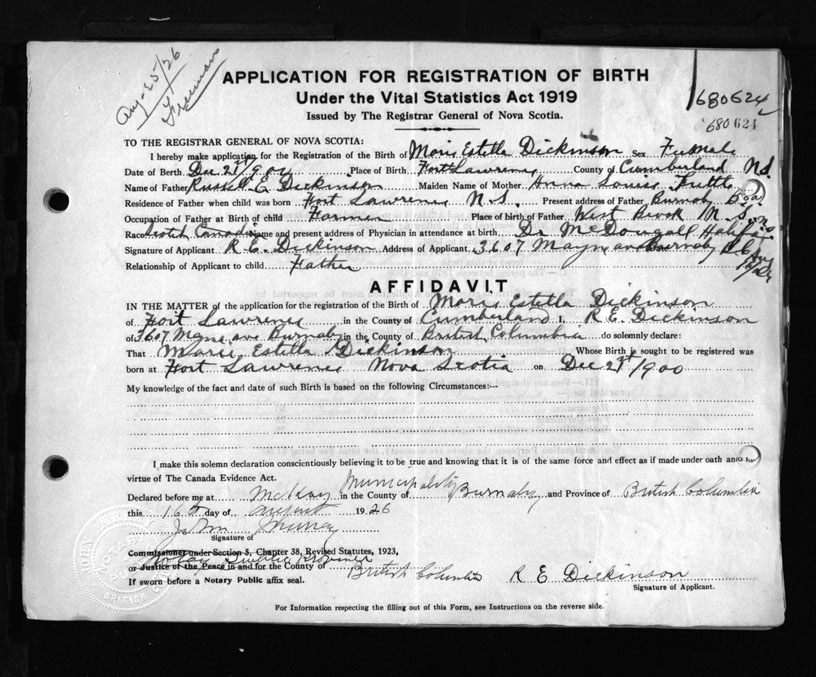 Aug-25/26
Freeman
APPLICATION FOR REGISTRATION OF BIRTH
680624
Under the Vital Statistics Act 1919
680624
Issued by The Registrar General of Nova Scotia.
TO THE REGISTRAR GENERAL OF NOVA SCOTIA:
I hereby make application for the Registration of the Birth of Moris Estella Dickinson Sex Female
Date of Birth Dec 21st/900 Place of Birth Fort Lawrence County of Cumberland N.S.
Name of Father Russell E. Dickinson Maiden Name of Mother Anna Louise
Residence of Father when child was born Fort Lawrence N.S. Present address of Father Burnaby B.C.
Occupation of Father at Birth of child Farmer Place of birth of Father West Brook N.S.
Race Scotch Canadian Name and present address of Physician in attendance at birth Dr McDougall Halifax N.S.
Signature of Applicant R. E. Dickinson Address of Applicant 3607 Burnaby
Relationship of Applicant to child Father
AFFIDAVIT
IN THE MATTER of the application for the registration of the Birth of Moris Estella Dickinson
of Fort Lawrence in the County of Cumberland I, R E. Dickinson
of 3607 ave Burnaby in the County of British Columbia do solemnly declare:
That Maris Estella Dickinson Whose Birth is sought to be registered was
born at Fort Lawrence Nova Scotia on Dec 21st/900
My knowledge of the fact and date of such Birth is based on the following Circumstances:—
I make this solemn declaration conscientiously believing it to be true and knowing that it is of the same force and effect as if made under oath and
virtue of The Canada Evidence Act.
Declared before me at McKay in the County of Municipality Burnaby and Province of British Columbia
this 16th day of August 1926
John Murray
Signature of
Commissioner under Section 5, Chapter 38, Revised Statutes, 1923,
Notary Public Province
or Justice of the Peace in and for the County of British Columbia R E Dickinson
If sworn before a Notary Public affix seal. Signature of Applicant.
For Information respecting the filling out of this Form, see Instructions on the reverse side.